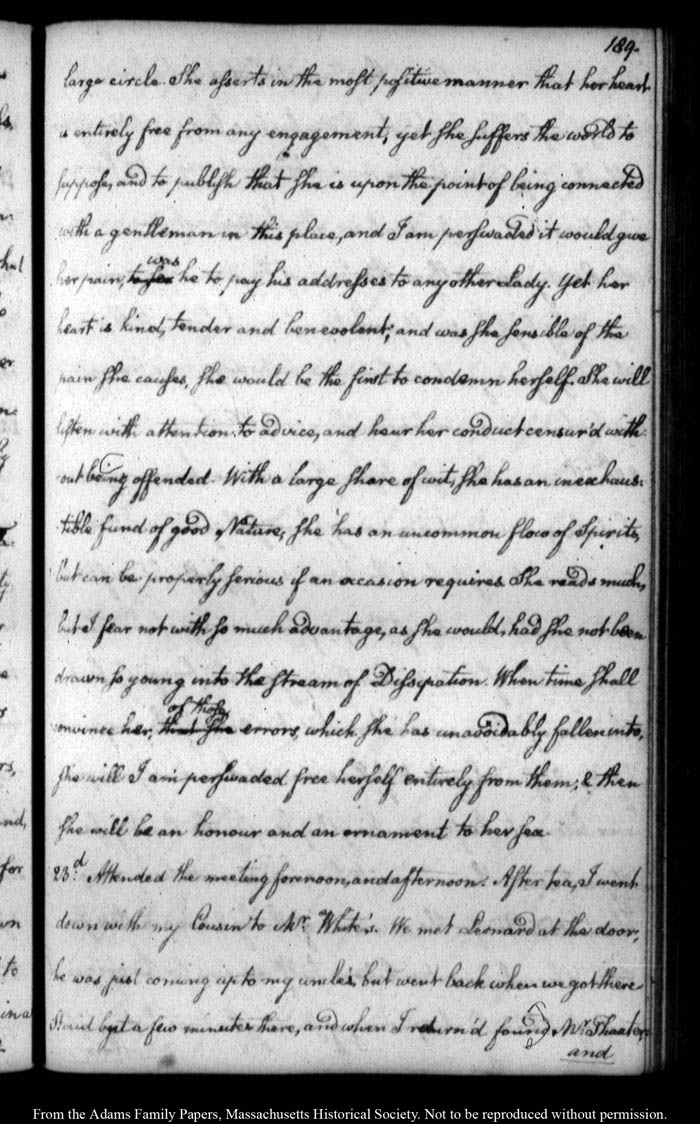 189.
large circle. She asserts in the most positive manner that her heart
is entirely free from any engagement, yet she suffers the world to
suppose, and to publish that she is upon the point of being connected
with a gentleman in this place, and I am perswaded it would give
her pain, was he to pay his addresses to any other Lady. Yet her
heart is kind, tender and benevolent; and was she sensible of the
pain she causes, she would be the first to condemn herself. She will
listen with attention to advice, and hear her conduct censur'd with-
out being offended. With a large share of wit, she has an inexhaus-
tible fund of good Nature; she has an uncommon flow of Spirits,
but can be properly serious if an occasion requires. She reads much,
but I fear not with so much advantage, as she would, had she not been
drawn so young into the stream of Dissipation. When time shall
convince her, of those errors, which she has unavoidably fallen into,
she will I am perswaded free herself entirely from them; & then
she will be an honour and an ornament to her sex.
23.d Attended the meeting forenoon, and afternoon. After tea, I went
down with my Cousin to Mr. White's. We met Leonard at the door,
he was just coming up to my uncle's, but went back when we got there
Staid but a few minutes there, and when I return'd found Mr. Thaxter
and
From the Adams Family Papers, Massachusetts Historical Society. Not to be reproduced without permission.